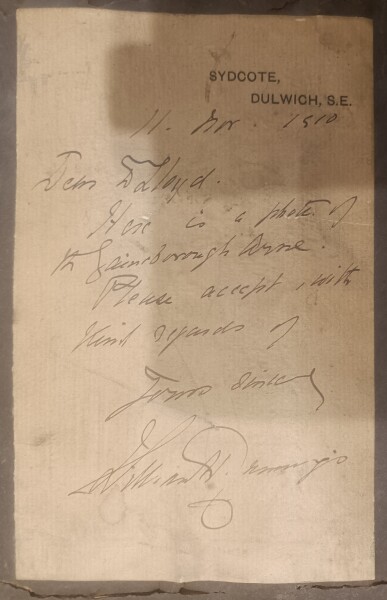 SYDCOTE,
DULWICH, S.E.
11. Nov. 1910
Dear D Lloyd.
Here is a photo. of
th Gainsborough
Please accept, with
Kind regards of
Yours sincy
William H.